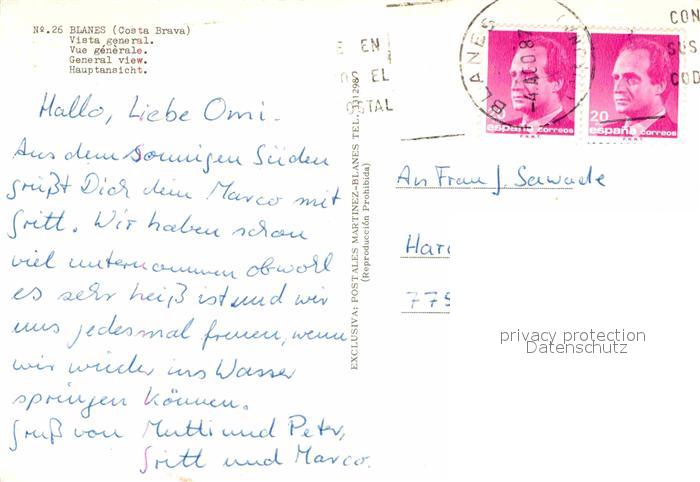 Nº.26 BLANES (Costa Brava)
Vista general.
Vue générale.
General view.
Hauptansicht.
Hallo, Liebe Omi.
Aus dem sonnigen Süden
grüßt Dich dein Marco mit
Gritt. Wir haben schon
viel unternommen obwohl
es sehr heiß ist und wir
uns jedesmal freuen, wenn
wir wieder ins Wasser
springen können.
Gruß von Mutti und Peter,
Gritt und Marco.
EXCLUSIVA: POSTALES MARTINEZ-BLANES TEL.
(Reproducción Prohibida)
E EN
OS EL
OSTAL
BLANES
-4 AGO 87
CON
SUS
COD
20
españa correos
españa correos
An Frau J. Sawade
Har
775
privacy protection
Datenschutz